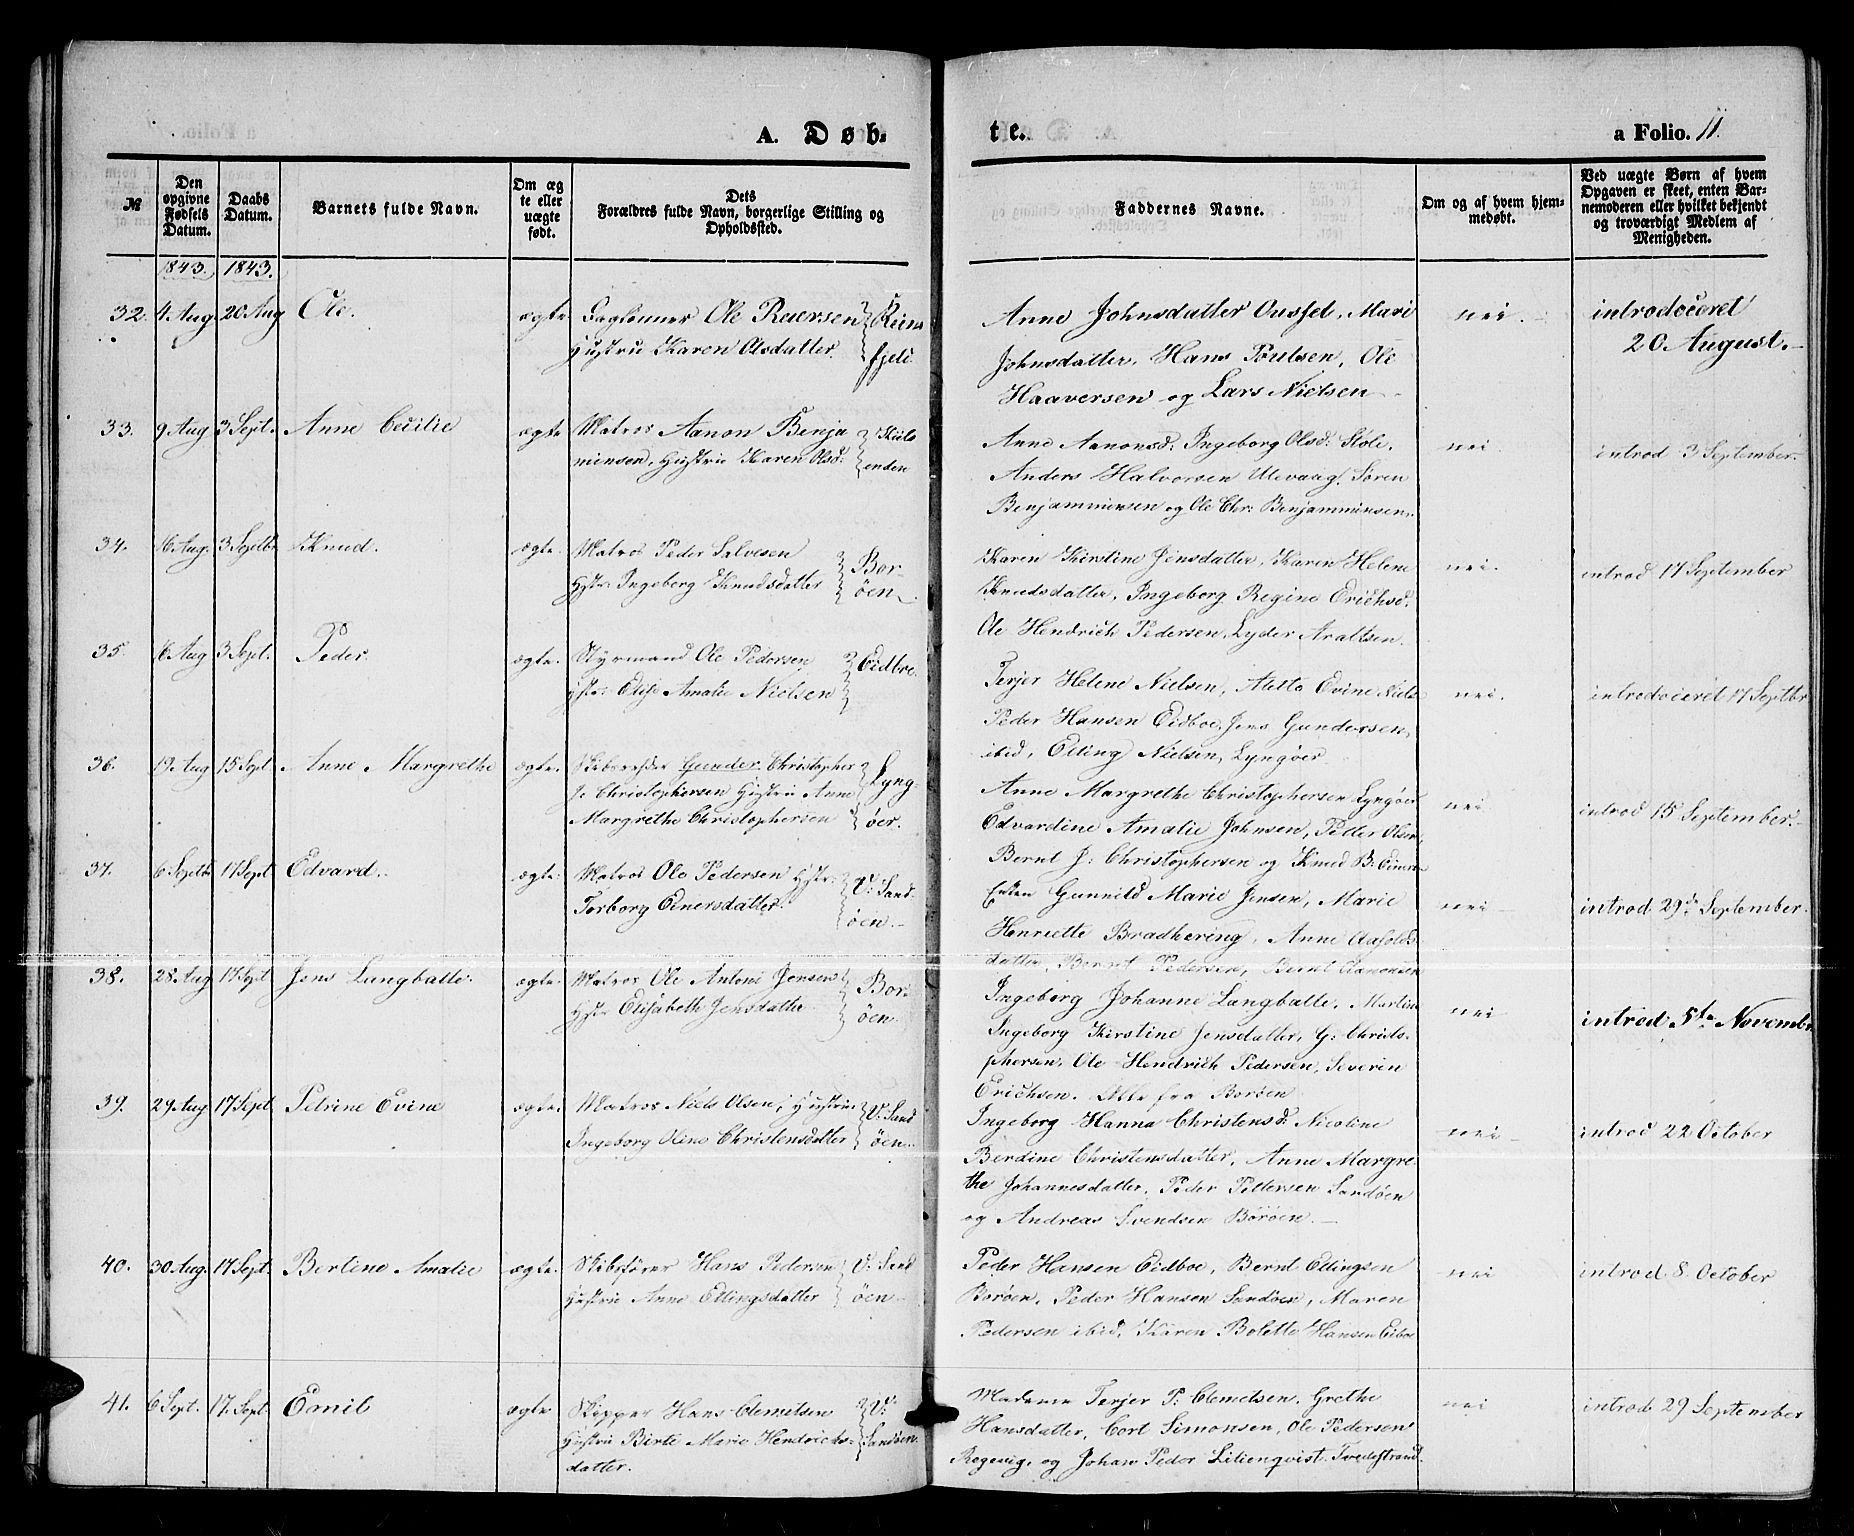 A. Døb-
te.
a Folio. 11.
№
Den opgivne Fødsels Datum.
Daabs Datum.
Barnets fulde Navn.
Om ægte eller uægte født.
Dets Forældres fulde Navn, borgerlige Stilling og Opholdssted.
Faddernes Navne.
Om og af hvem hjemmedøbt.
Ved uægte Børn af hvem Opgaven er skeet, enten Barnemoderen eller hvilket bekjendt og troværdigt Medlem af Menigheden.
1843. 1843.
32. 4 Aug 20 Aug Ole. ægte
Ole Reiersen
Hustrue Karen Olsdatter.
Anne Johnsdatter Ousset, Mari
Johnsdatter, Hans Poulsen, Ole
Haaversen og Lars Nielsen
nei.
introduceret
20 August.
33. 9 Aug 3 Sept. Anne Cecilie ægte
Matros Aanon Benja
minsen, Hustrue Karen Olsd:
Kiil
enden
Anne Aanonsd: Ingeborg Olsd: Støle,
Anders Halvorsen Ulevaag, Søren
Benjaminsen og Ole Chr: Benjaminsen.
nei.
introd 3 September.
34. 16 Aug. 3 Septbr Knud. ægte.
Matros Peder Salvesen
Hstr: Ingeborg Knudsdatter
Bor-
øen.
Karen Kirstine Jensdatter, Karen Helene
Knudsdatter, Ingeborg Regine Erichsd.
Ole Hendrich Pedersen, Lyder Araltsen.
nei.
introd 17 September
35. 6 Aug 3 Sept. Peder. ægte.
Styrmand Ole Pedersen
Hstr: Elise Amalie Nielsen
Eidboe.
Terjer Helene Nielsen, Alette Evine Niels
Peder Hansen Eidboe, Jens Gundersen,
ibid, Elling Nielsen, Lyngøer.
nei.
introduceret 17 Septbr
36. 19 Aug 15 Sept Anne Margrethe ægte.
Skibsreder Gunder Christopher
J. Christophersen Hustrue Anne
Margrethe Christophersen
Lyng-
øer.
Anne Margrethe Christophersen Lyngøer
Edvardine Amalie Johnsen, Petter Olsen
Bernt J: Christophersen og Knud B: Einersen
nei.
introd 15 September.
37. 6 Septbr 17 Sept Edvard. ægte.
Matros Ole Pedersen Hstr:
Torborg Einersdatter.
V: Sand-
øen.
Enken Gunnild Marie Jensen, Marie
Henriette Bradhering, Anne Aasolds
datter, Bernt Pedersen, Bernt Aanonsen
nei
introd 29de September.
38. 28 Aug 17 Sept Jens Langballe. ægte.
Matros Ole Antoni Jensen
Hstr Elisabeth Jensdatter
Bor-
øen
Ingeborg Johanne Langballe, Martine
Ingeborg Kirstine Jensdatter, G: Christo-
phersen, Ole Hendrich Pedersen, Severin
Erichsen. Alle fra Borøen
nei
introd 5te Novembr
39. 29 Aug 17 Sept Petrine Evine ægte.
Matros Niels Olsen, Hustrue
Ingeborg Oline Christensdatter
V: Sand
øen.
Ingeborg Hanna Christensd: Nicoline
Berdine Christensdatter, Anne Margre-
the Johannesdatter, Peder Pettersen Sandøen
og Andreas Svendsen Borøen.
nei
introd 22 October
40. 30 Aug. 17 Sept. Bertine Amalie ægte.
Skibsfører Hans Pedersen
Hustrue Anne Ellingsdatter
V: Sand
øen
Peder Hansen Eidboe, Bernt Ellingsen
Borøen, Peder Hansen Sandøen, Maren
Pedersen ibid, Karen Bolette Hansen Eiboe
nei
introd 8 October
41. 6 Sept. 17 Sept. Emil ægte
Skipper Hans Clemetsen
Hustrue Birte Marie Hendrichs-
datter.
V:
Sandøen.
Madame Terjer P: Clemetsen, Grethe
Hansdatter, Cort Simonsen, Ole Pedersen
Regevig, og Johan Peder Lilienqvist Tvedestrand.
nei
introd 29 September